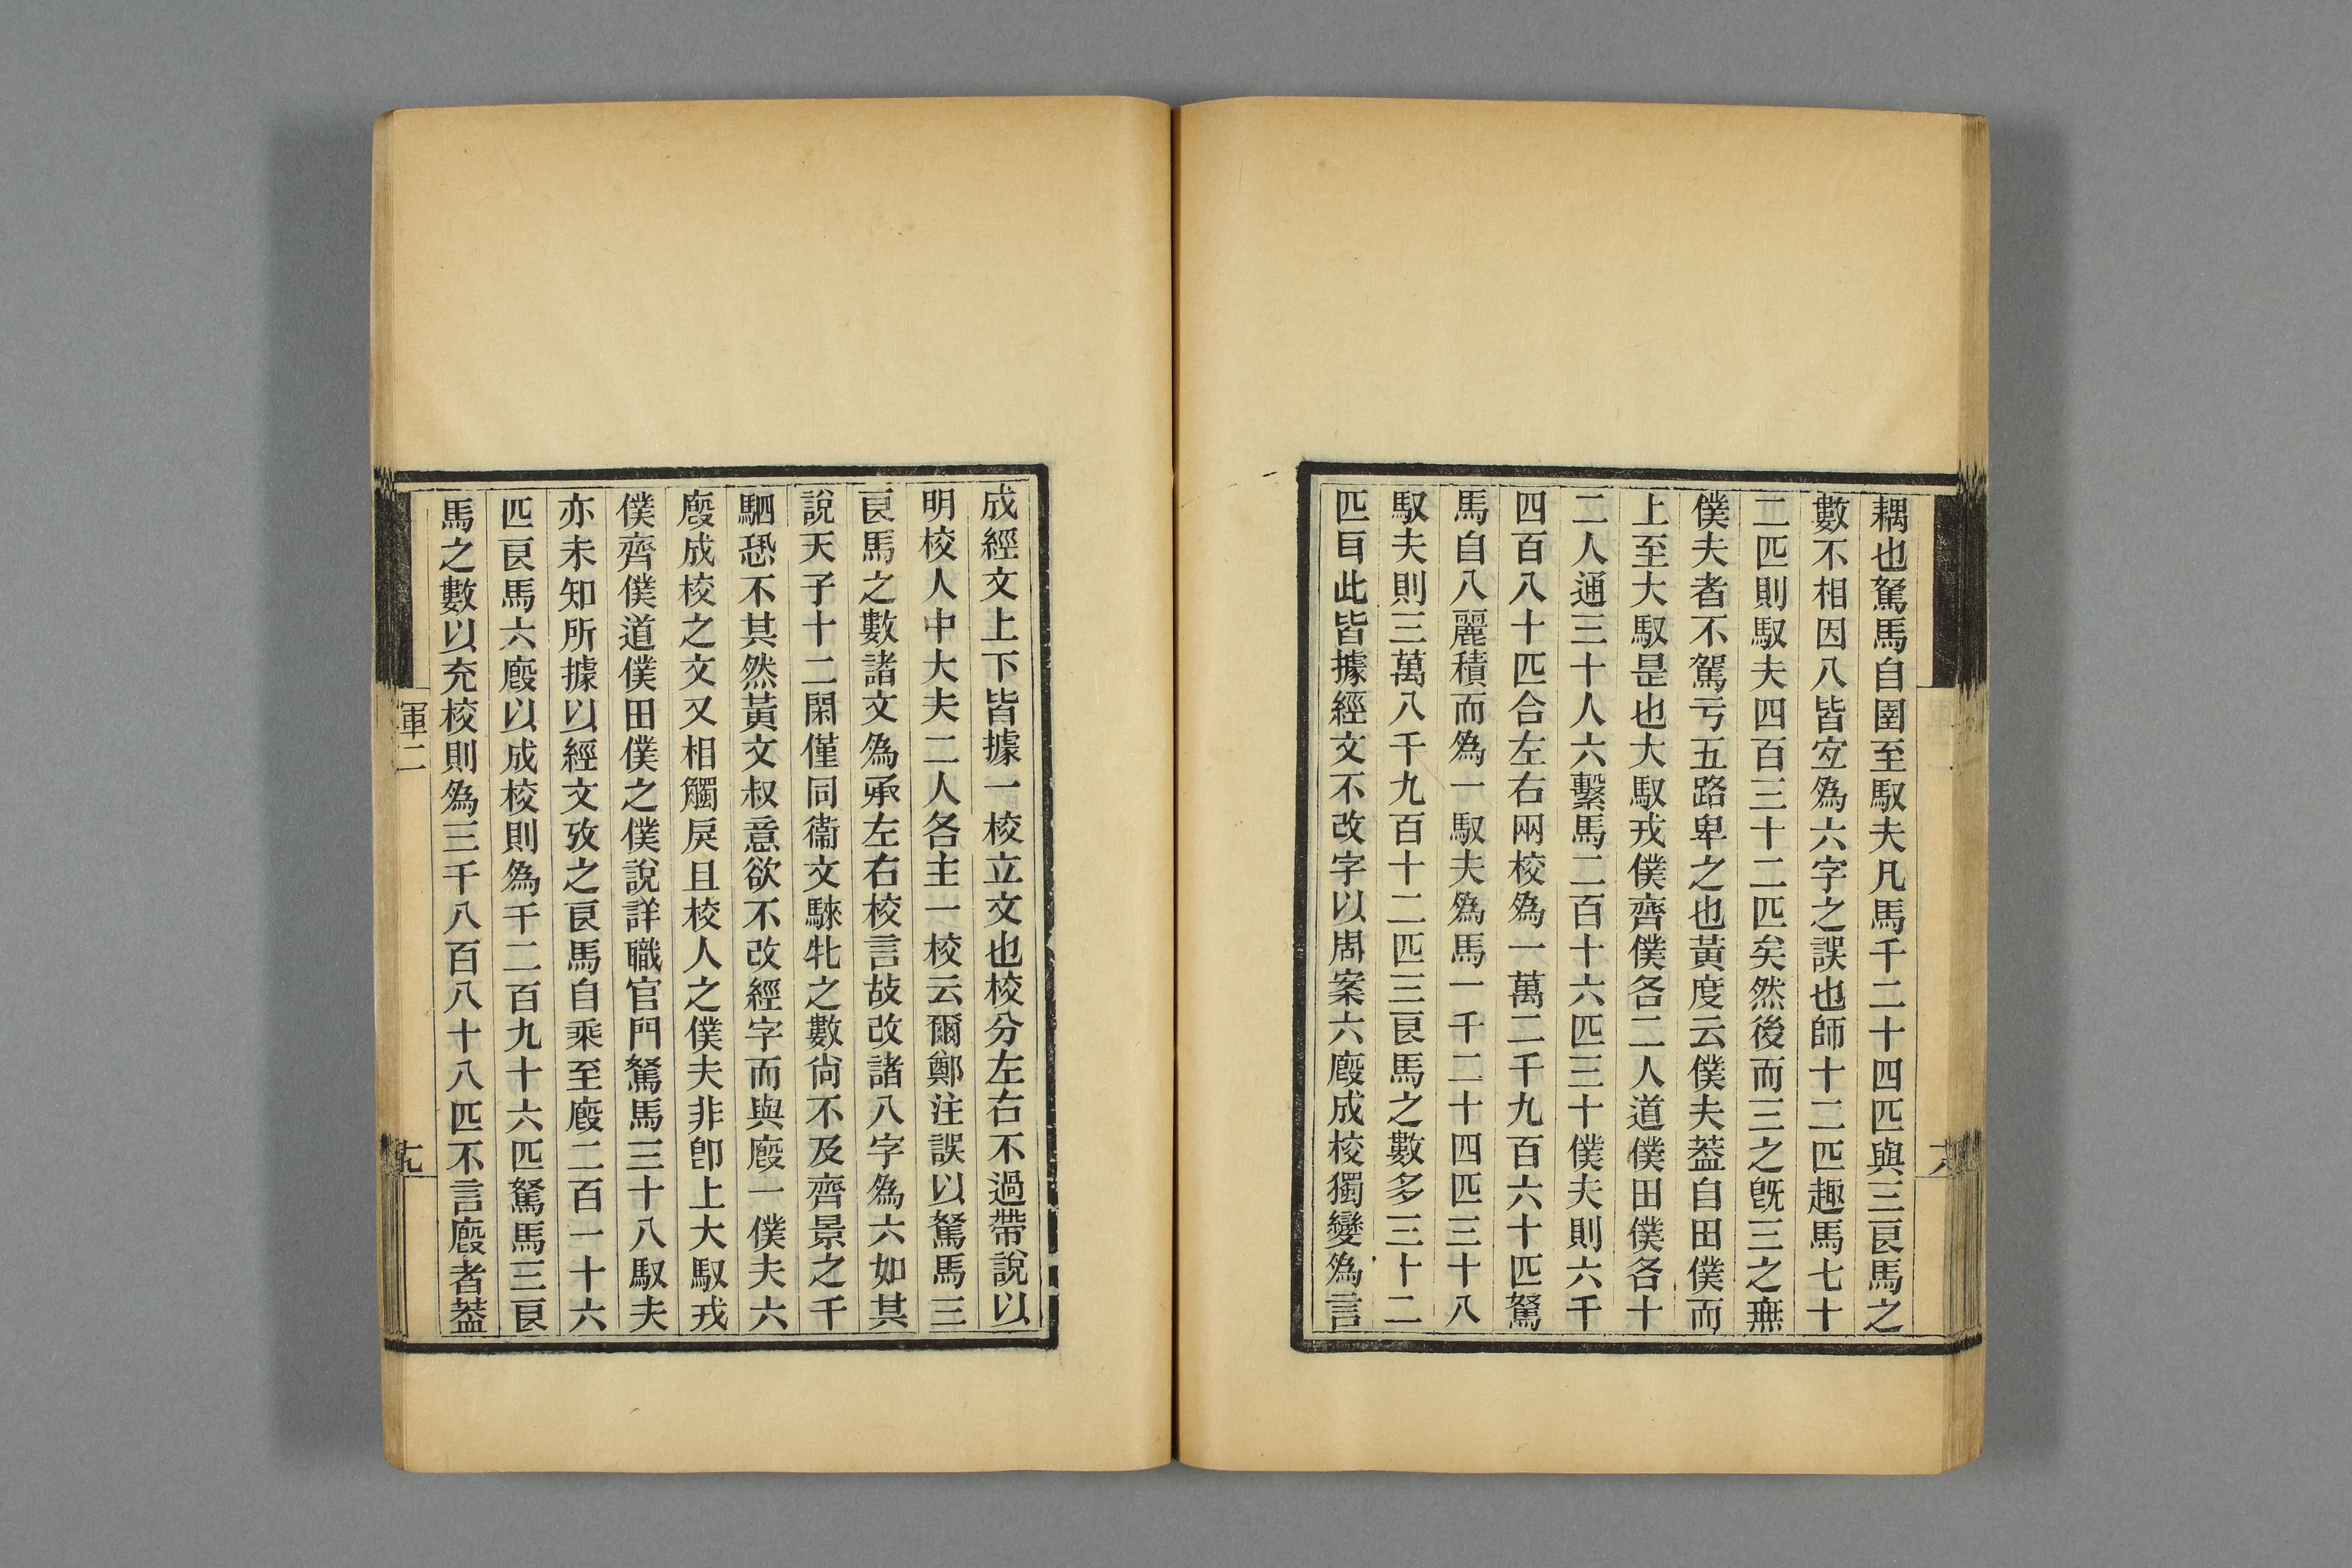 耦也駑馬自圉至馭夫凡馬千二十四匹與三㫐馬之
數不相因八皆宐爲六字之誤也師十二匹趣馬七十
二匹則馭夫四百三十二匹矣然後而三之旣三之無
僕夫者不駕亏五路卑之也黃度云僕夫葢自田僕而
上至大馭是也大馭戎僕齊僕各二人道僕田僕各十
二人通三十人六繫馬二百十六匹三十僕夫則六千
四百八十匹合左右兩校爲一萬二千九百六十匹駑
馬自八麗積而爲一馭夫爲馬一千二十四匹三十八
馭夫則三萬八千九百十二匹三㫐馬之數多三十二
匹㠯此皆據經文不改字以周案六廏成校獨變爲言
成經文上下皆據一校立文也校分左右不過帶說以
明校人中大夫二人各主一校云爾鄭注誤以駑馬三
㫐馬之數諸文爲承左右校言故改諸八字爲六如其
說天子十二閑僅同衞文騋牝之數尙不及齊景之千
駟恐不其然黃文叔意欲不改經字而與廏一僕夫六
廏成校之文又相觸戾且校人之僕夫非卽上大馭戎
僕齊僕道僕田僕之僕說詳職官門駑馬三十八馭夫
亦未知所據以經文攷之㫐馬自乘至廏二百一十六
匹㫐馬六廏以成校則爲千二百九十六匹駑馬三㫐
馬之數以充校則爲三千八百八十八匹不言廏者葢
軍二
十九